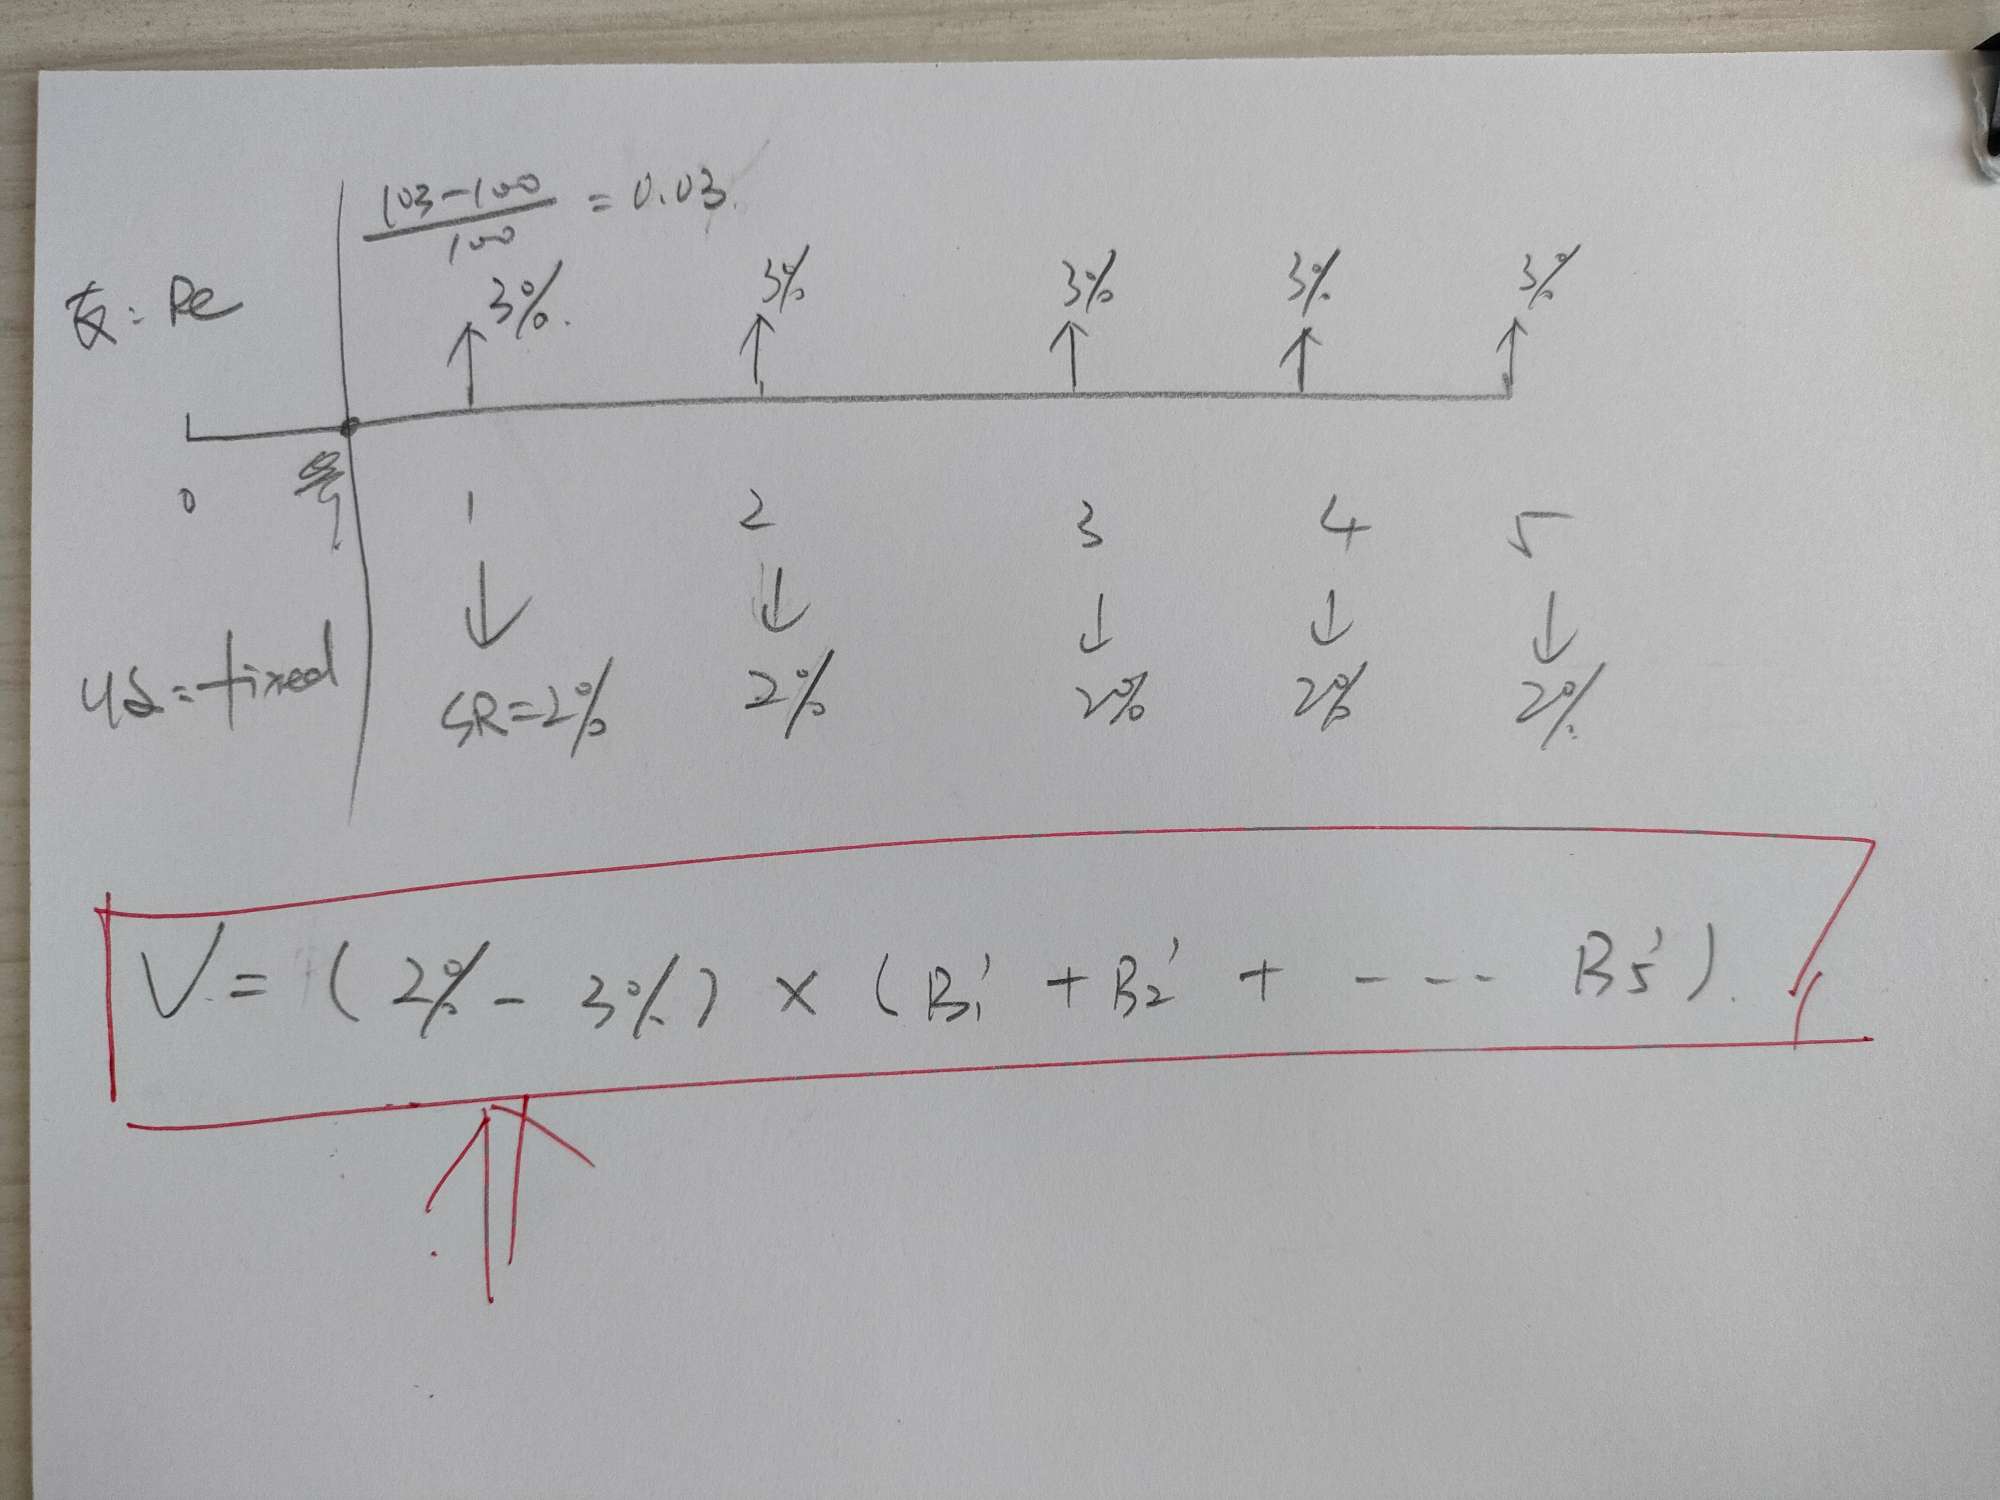 103-100 / 100 = 0.03.
支: Re
3%. 3% 3% 3% 3%
0 1 2 3 4 5
收=fixed
SR=2% 2% 2% 2% 2%
V = (2% - 3%) × (B₁' + B₂' + ---- B₅').